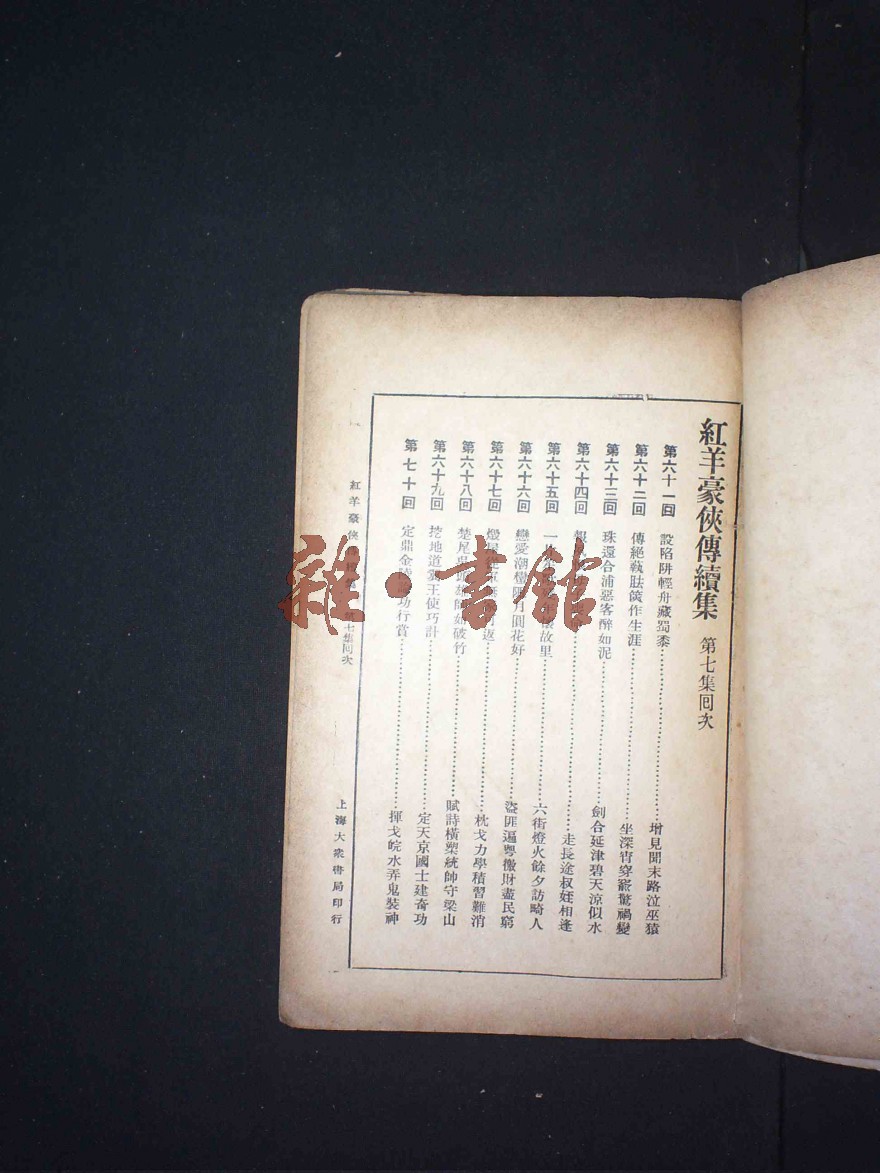 紅羊豪俠傳續集 第七集回次
第六十一回 設陷阱輕舟藏蜀黍……增見聞末路泣巫猿
第六十二回 傳絕執肱篋作生涯……坐深宵穿窬驚禍變
第六十三回 珠還合浦惡客醉如泥……劍合延津碧天涼似水
第六十四回 ……走長途叔姪相逢
第六十五回 一 故里……六街燈火餘夕訪畸人
第六十六回 戀愛潮 月圓花好……盜匪逼粵徼財盡民窮
第六十七回 返……枕戈力學積習難消
第六十八回 楚尾吳頭雄師如破竹……賦詩橫槊統帥守梁山
第六十九回 挖地道翼王使巧計……定天京國士建奇功
第七十回 定鼎金陵 功行賞……揮戈皖水弄鬼裝神
紅羊豪俠 第七集回次
上海大衆書局印行
雜·書館